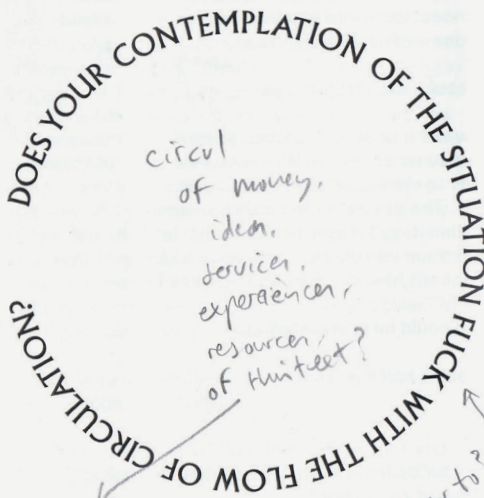 DOES YOUR CONTEMPLATION OF THE SITUATION FUCK WITH THE FLOW OF CIRCULATION?
circul
of money,
ideas,
services,
experiences,
resources,
of
to?